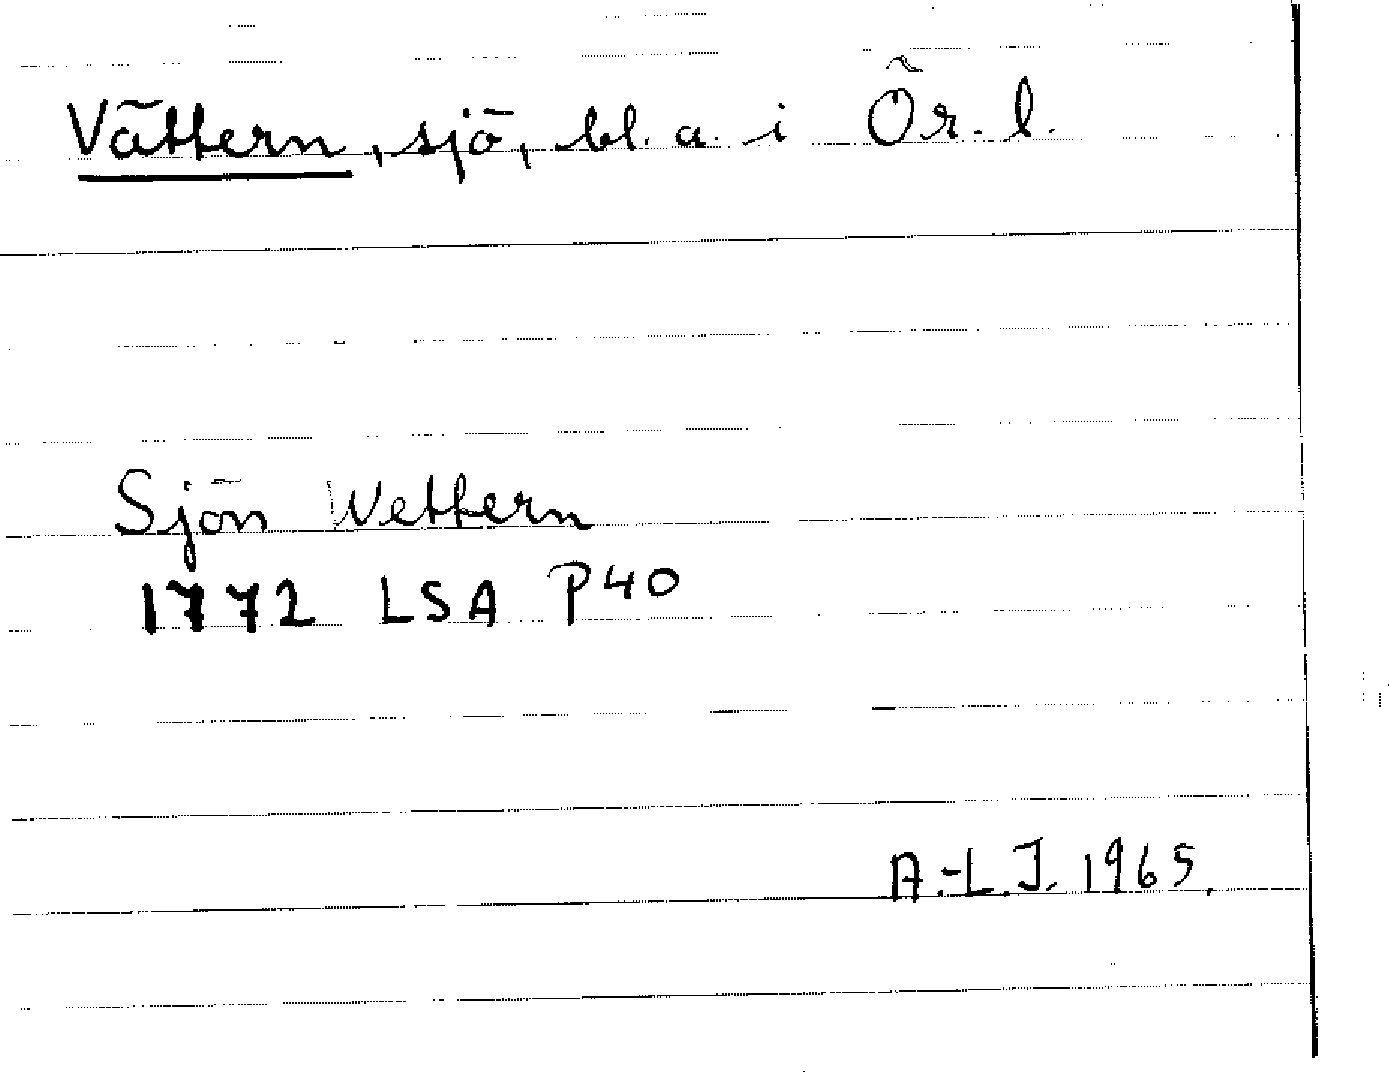 Vättern, sjö, bl. a. i Ör. l.
Sjön Wettern
1772 LSA P40
A.-L.J. 1965.